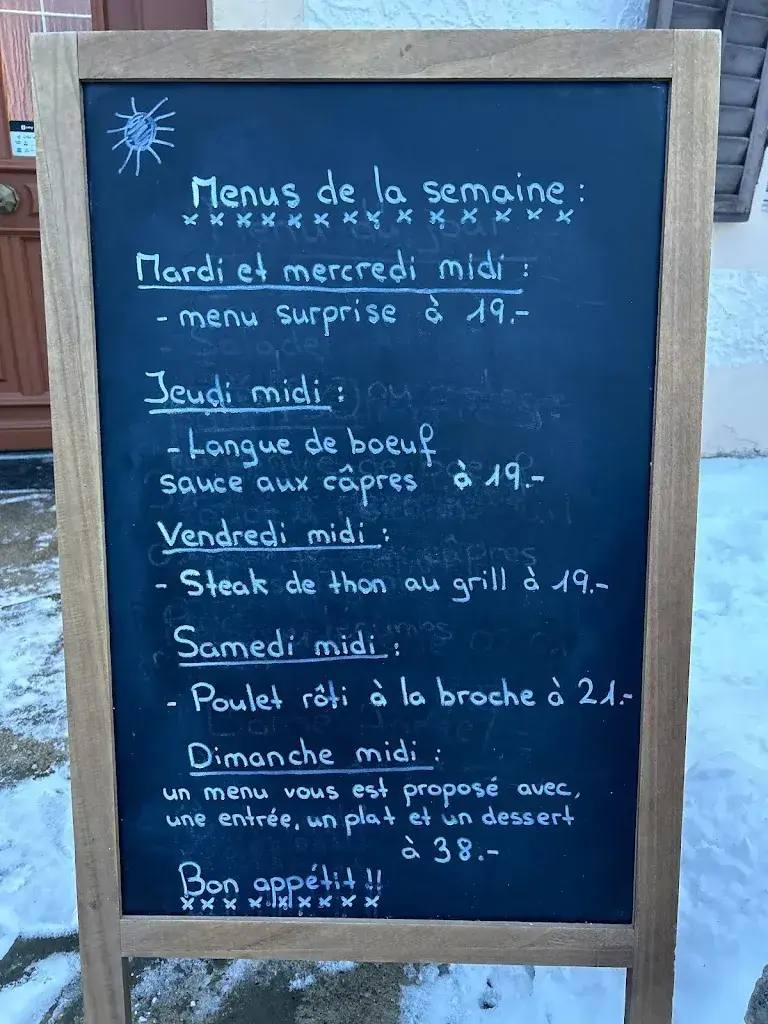 Menus de la semaine :
Mardi et mercredi midi :
- menu surprise à 19.-
Jeudi midi :
- Langue de boeuf
sauce aux câpres à 19.-
Vendredi midi :
- Steak de thon au grill à 19.-
Samedi midi :
- Poulet rôti à la broche à 21.-
Dimanche midi :
un menu vous est proposé avec,
une entrée, un plat et un dessert
à 38.-
Bon appétit !!